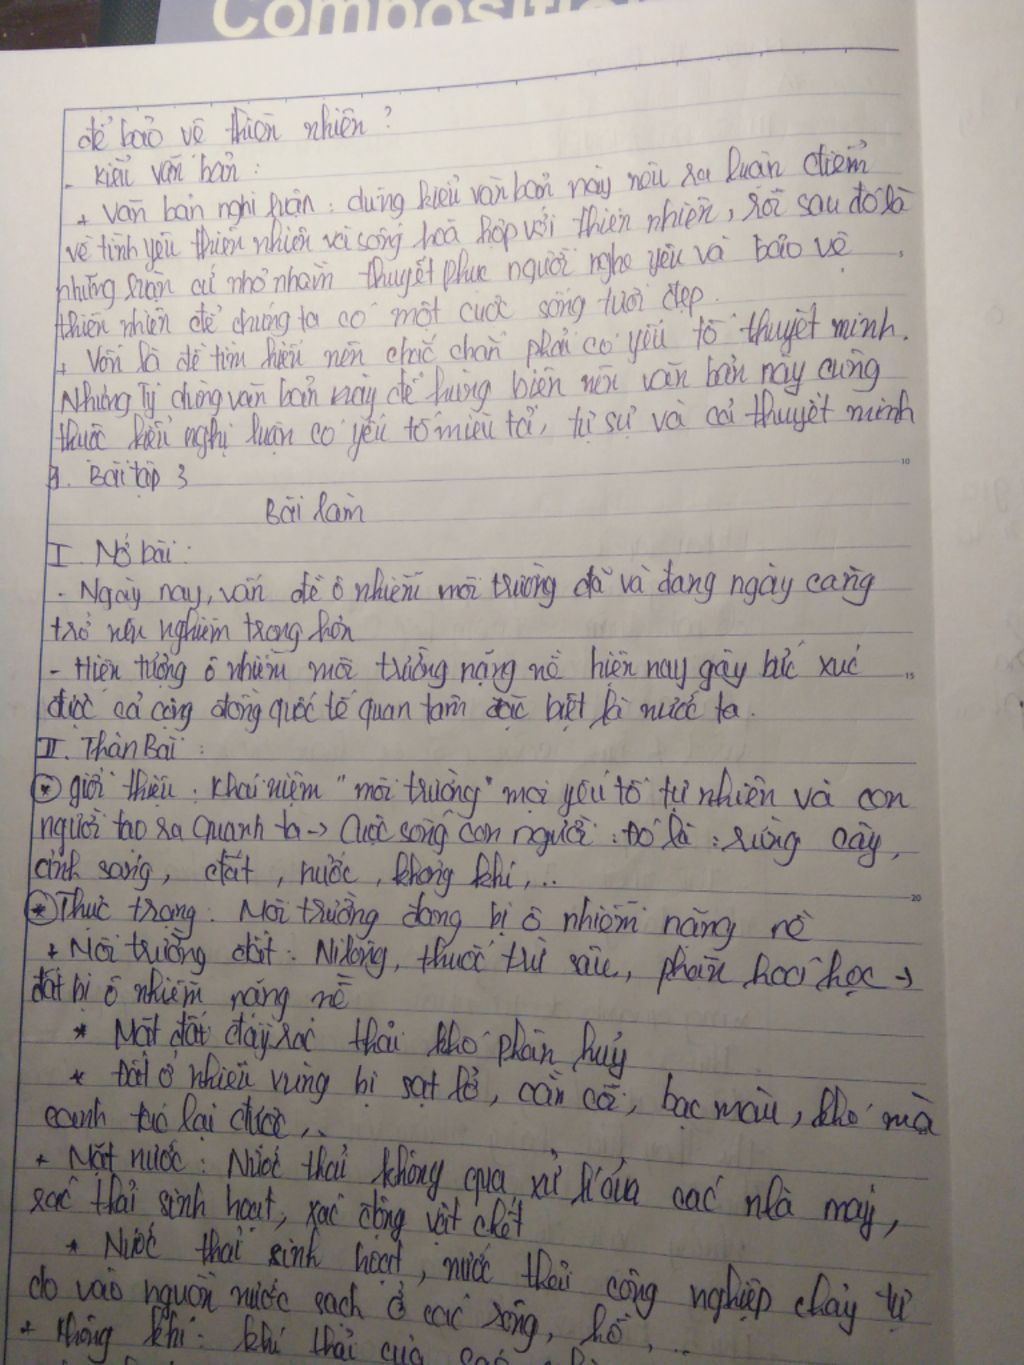 Composition
để bảo vệ thiên nhiên ?
- Kiểu văn bản :
+ Văn bản nghị luận : dùng kiểu văn bản này nêu ra luận điểm
về tình yêu thiên nhiên và sống hoà hợp với thiên nhiên, rồi sau đó là
những luận cứ nhỏ nhằm thuyết phục người nghe yêu và bảo vệ
thiên nhiên để chúng ta có một cuộc sống tươi đẹp.
+ Vốn là đề tìm hiểu nên chắc chắn phải có yếu tố thuyết minh.
Nhưng lý dùng văn bản này để hùng biện nên văn bản này cũng
thuộc kiểu nghị luận có yếu tố miêu tả, tự sự và cả thuyết minh
10
. Bài tập 3
Bài làm
I. Mở bài :
- Ngày nay, vấn đề ô nhiễm môi trường đã và đang ngày càng
trở nên nghiêm trọng hơn
- Hiện tượng ô nhiễm môi trường nặng nề hiện nay gây bức xúc
15
được cả cộng đồng quốc tế quan tâm đặc biệt là nước ta.
II. Thân Bài :
* giới thiệu : Khái niệm "môi trường" mọi yếu tố tự nhiên và con
người tạo ra quanh ta -> Cuộc sống con người : Đó là : rừng cây,
sông, đất, nước, không khí,...
20
* Thực trạng : Môi trường đang bị ô nhiễm nặng nề
+ Môi trường đất : Nilông, thuốc trừ sâu, phân hoá học ->
đất bị ô nhiễm nặng nề
* Mặt đất đầy rác thải khó phân huỷ
* Đất ở nhiều vùng bị sạt lở, cằn cỗi, bạc màu, khó mà
canh tác lại được,..
+ Mặt nước : Nước thải không qua xử lí của các nhà máy,
rác thải sinh hoạt, xác động vật chết
* Nước thải sinh hoạt, nước thải công nghiệp chảy tự
do vào nguồn nước sạch ở các sông, hồ, ...
+ Không khí : khí thải của các